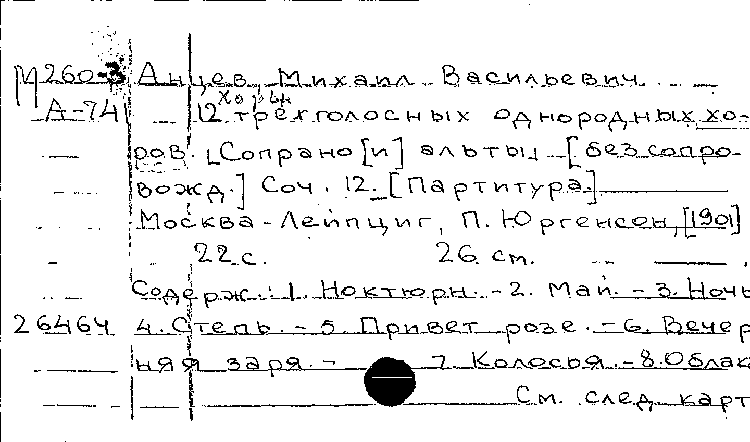 М260-3 Анцев, Михаил Васильевич.
хоры
А-74 12 трёхголосных однородных хо-
ров. [Сопрано [и] альты] [без сопро-
вожд.] Соч. 12. [Партитура.]
Москва-Лейпциг, П. Юргенсен, [1901]
22 с. 26 см.
Содерж.: 1. Ноктюрн. - 2. Май. - 3. Ночь
26464 4. Степь. - 5. Привет розе. - 6. Вечер
няя заря. - 7. Колосья. - 8. Облак
См. след. карт